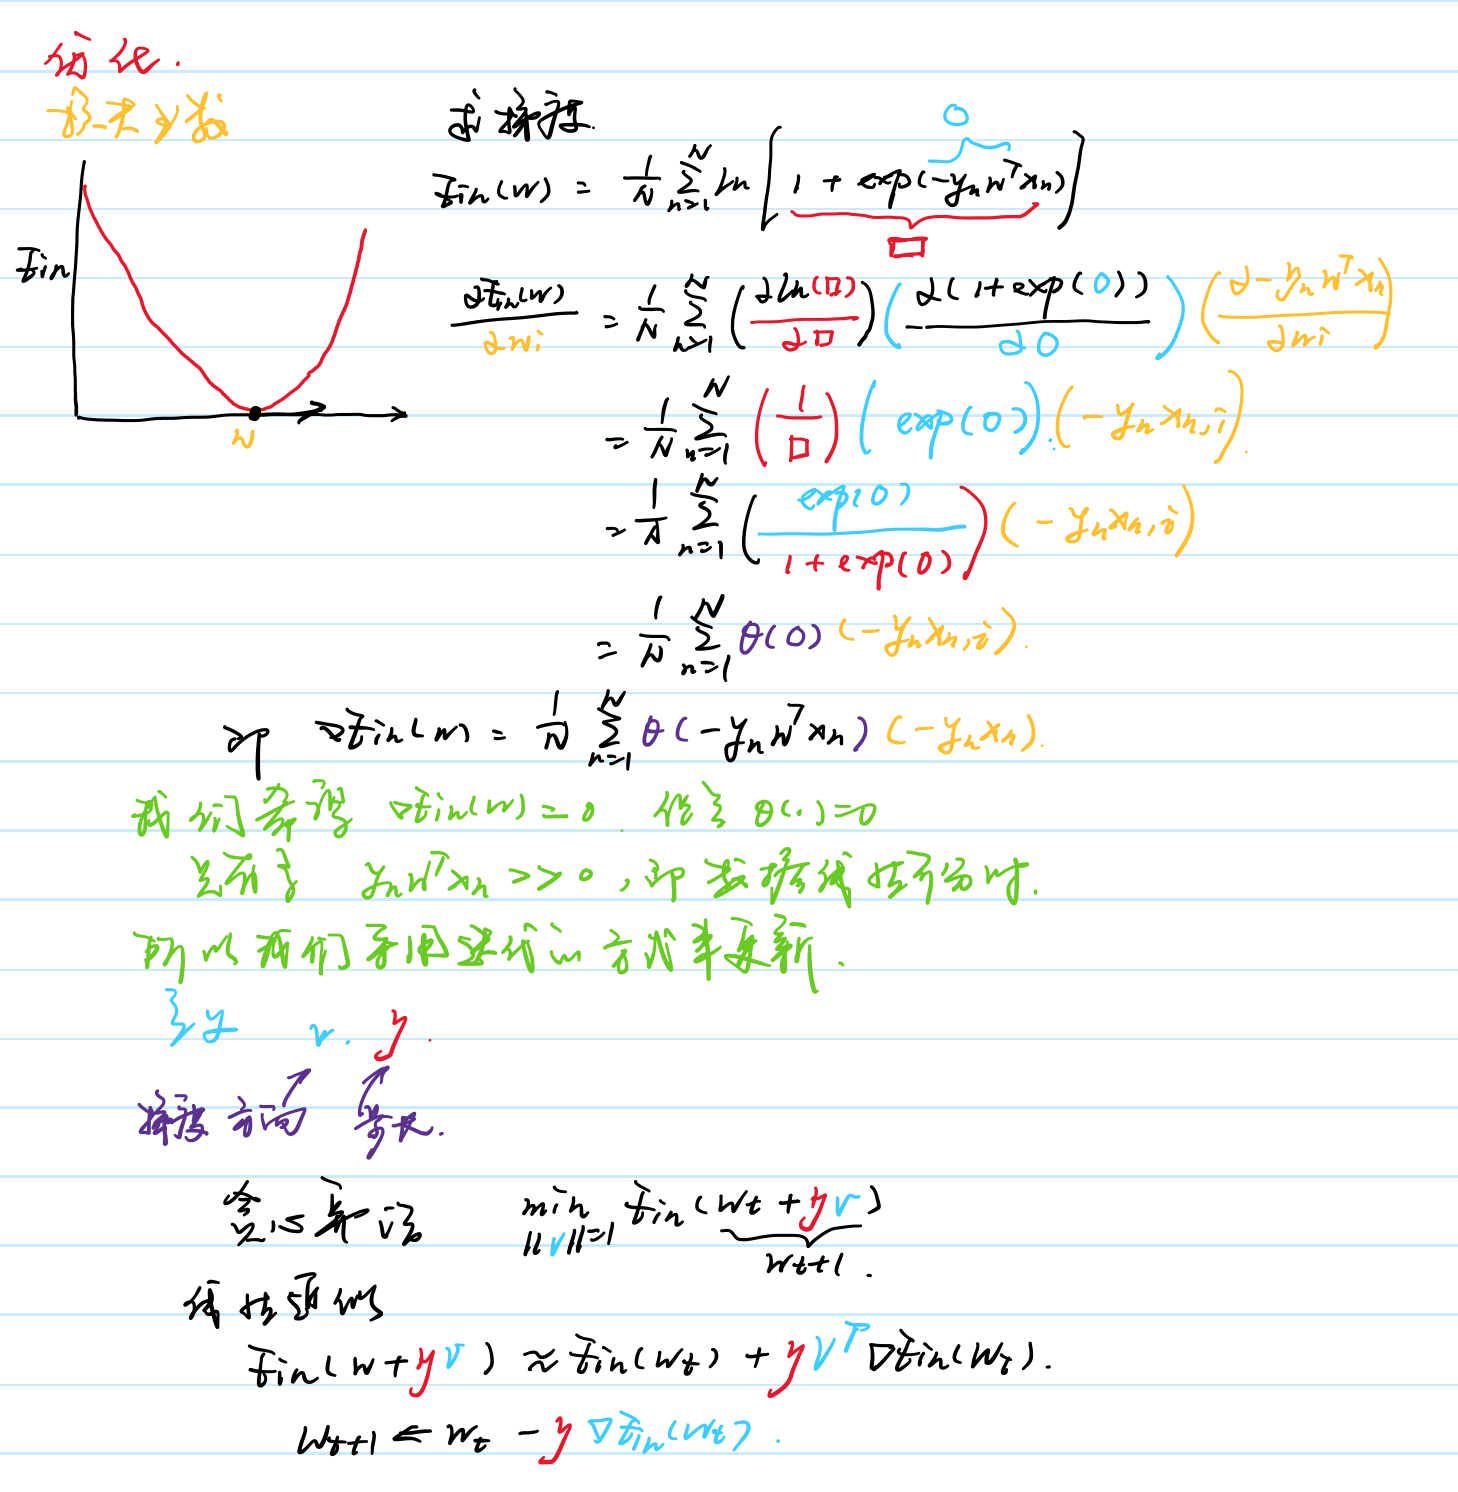 优化.
损失函数
Ein
w
求梯度.
Ein(w) = 1/N Σ_{n=1}^{N} ln [ 1 + exp(-y_n w^T x_n) ]
○
□
∂Ein(w)/∂wi = 1/N Σ_{n=1}^{N} (∂ln(□)/∂□) (∂(1+exp(○))/∂○) (∂-y_n w^T x_n/∂wi)
= 1/N Σ_{n=1}^{N} (1/□) (exp(○)) · (-y_n x_{n,i}).
= 1/N Σ_{n=1}^{N} (exp(○)/1+exp(○)) (-y_n x_{n,i})
= 1/N Σ_{n=1}^{N} θ(○) (-y_n x_{n,i}).
即 ∇Ein(w) = 1/N Σ_{n=1}^{N} θ(-y_n w^T x_n) (-y_n x_n).
我们希望 ∇Ein(w) = 0. 但 θ(·)=0
只有 y_n w^T x_n >> 0, 即数据线性可分时.
所以我们采用迭代的方式来更新.
v. η.
梯度方向 步长.
贪心算法 min_{||v||=1} Ein(w_t + ηv)
w_{t+1}.
线性近似
Ein(w+ηv) ≈ Ein(w_t) + ηv^T ∇Ein(w_t).
w_{t+1} ← w_t - η∇Ein(w_t).